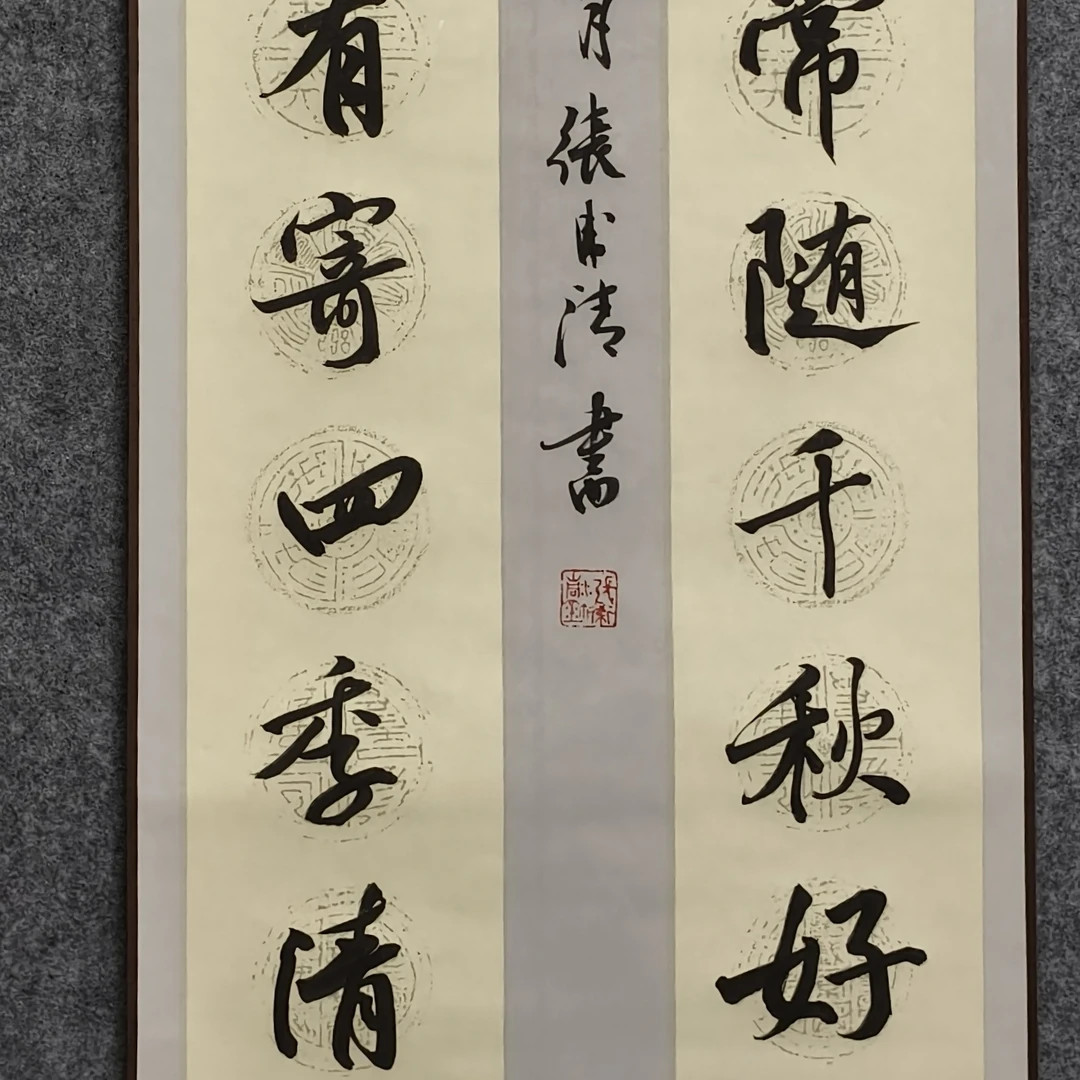 常随千秋好
月张甫清书
有寄四季清